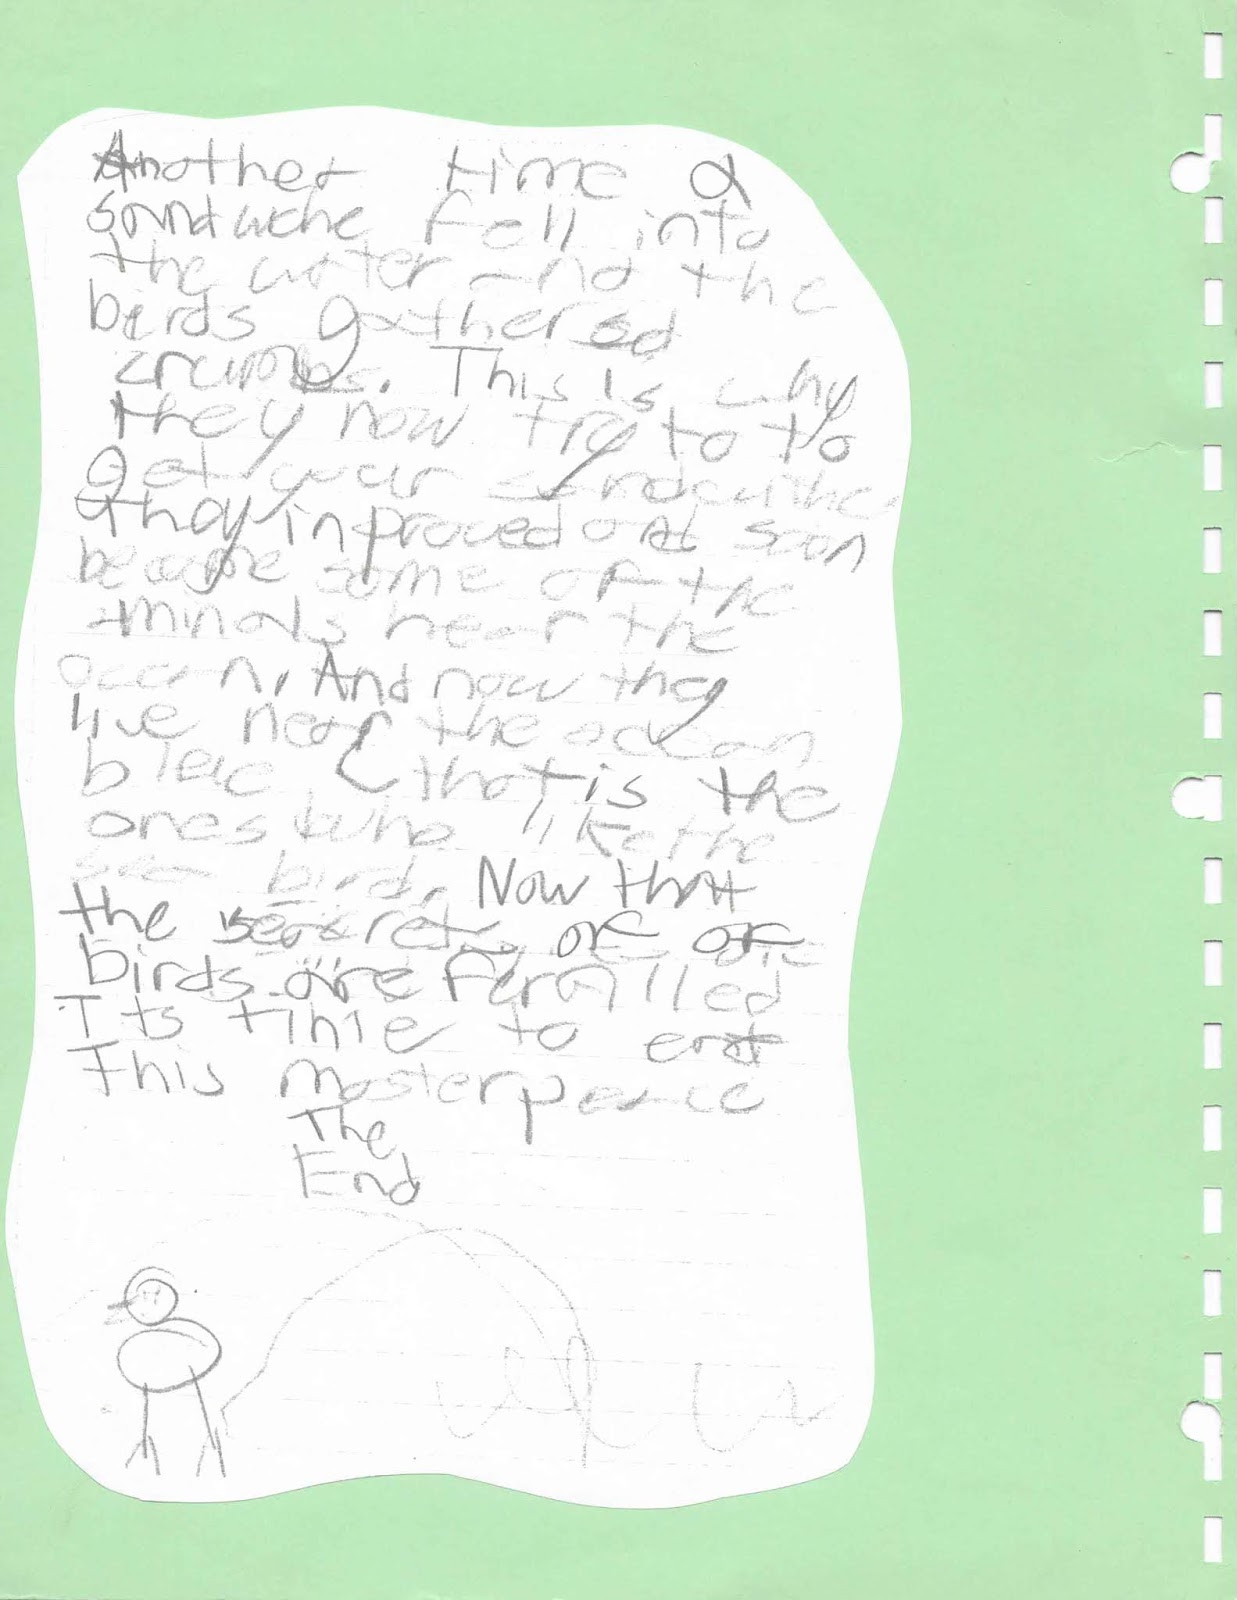 Another time a
sandwiche fell into
the water and the
birds gathered
crumbs. This is why
they now try to to
get your sandwiche
they inproved and soon
became some of the
aminals near the
ocean, And now they
live near the ocean
blac that is the
ones who like the
sea bird. Now that
the secret of of
birds are
Its time to
This masterpeace
The
End